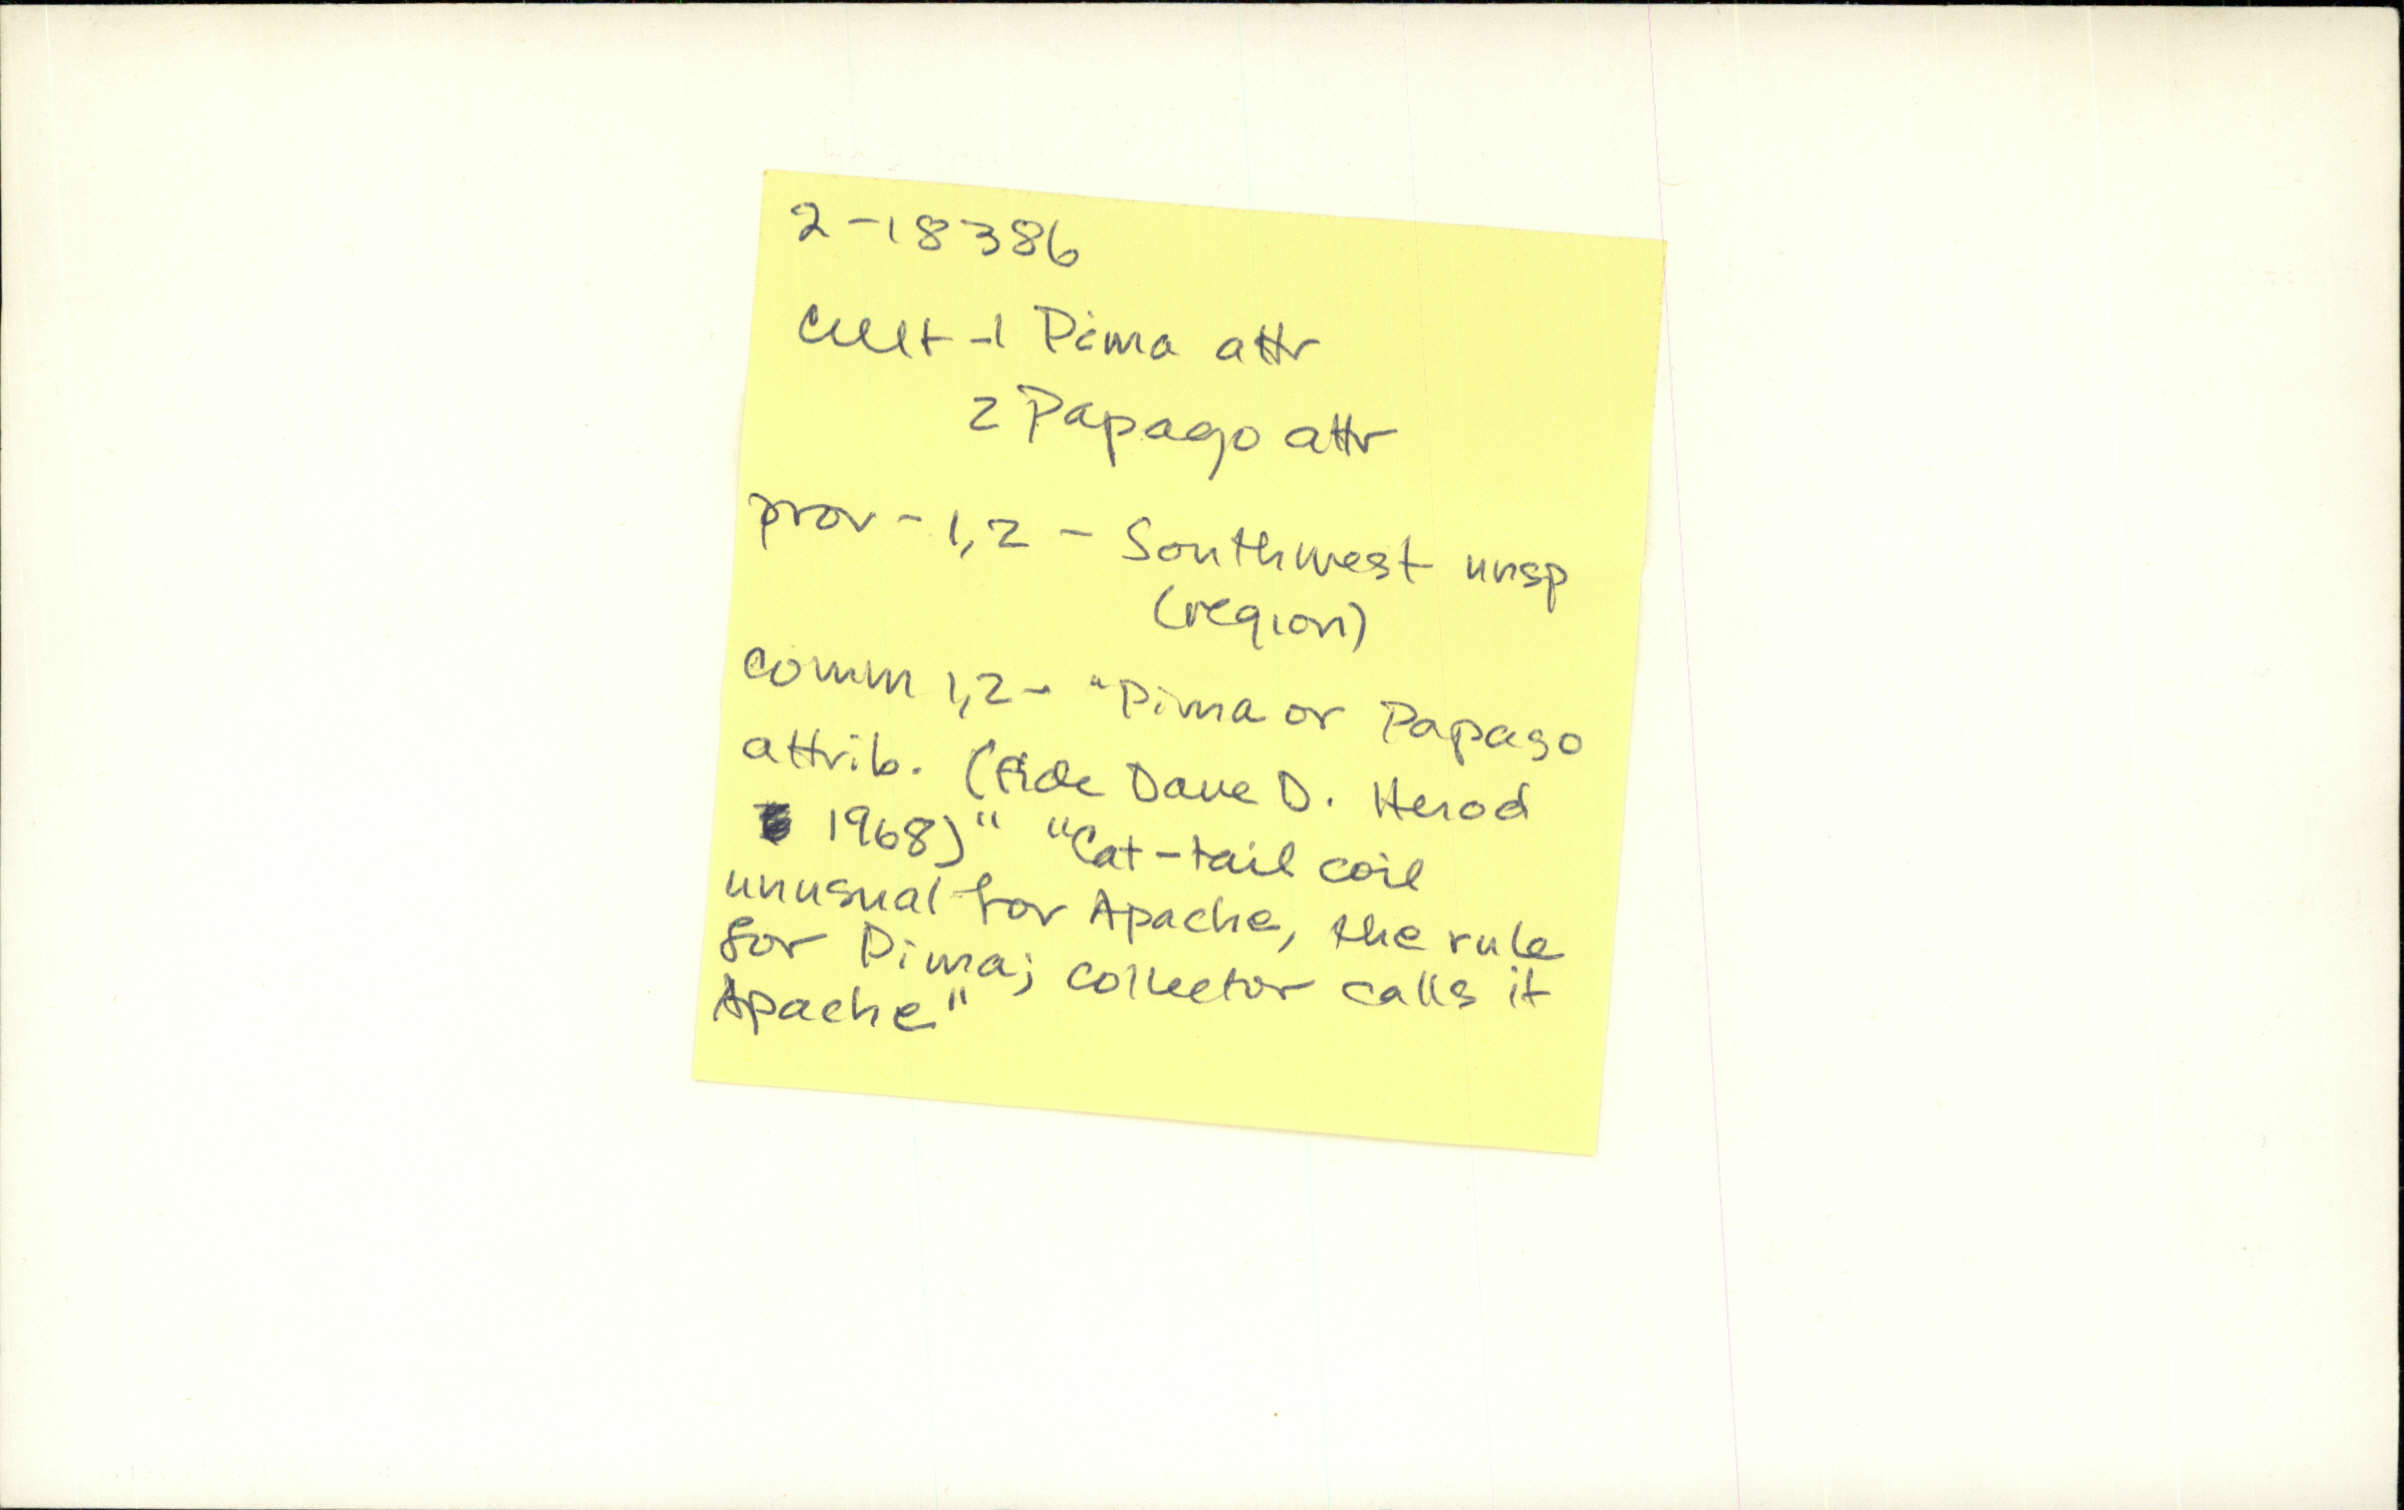 2-18386
Cult-1 Pima attr
2 Papago attr
prov - 1,2 - Southwest unsp
(region)
Comm 1,2 - "Pima or Papago
attrib. (fide Dave D. Herod
1968)" "Cat-tail coil
unusual for Apache, the rule
for Pima; collector calls it
Apache"